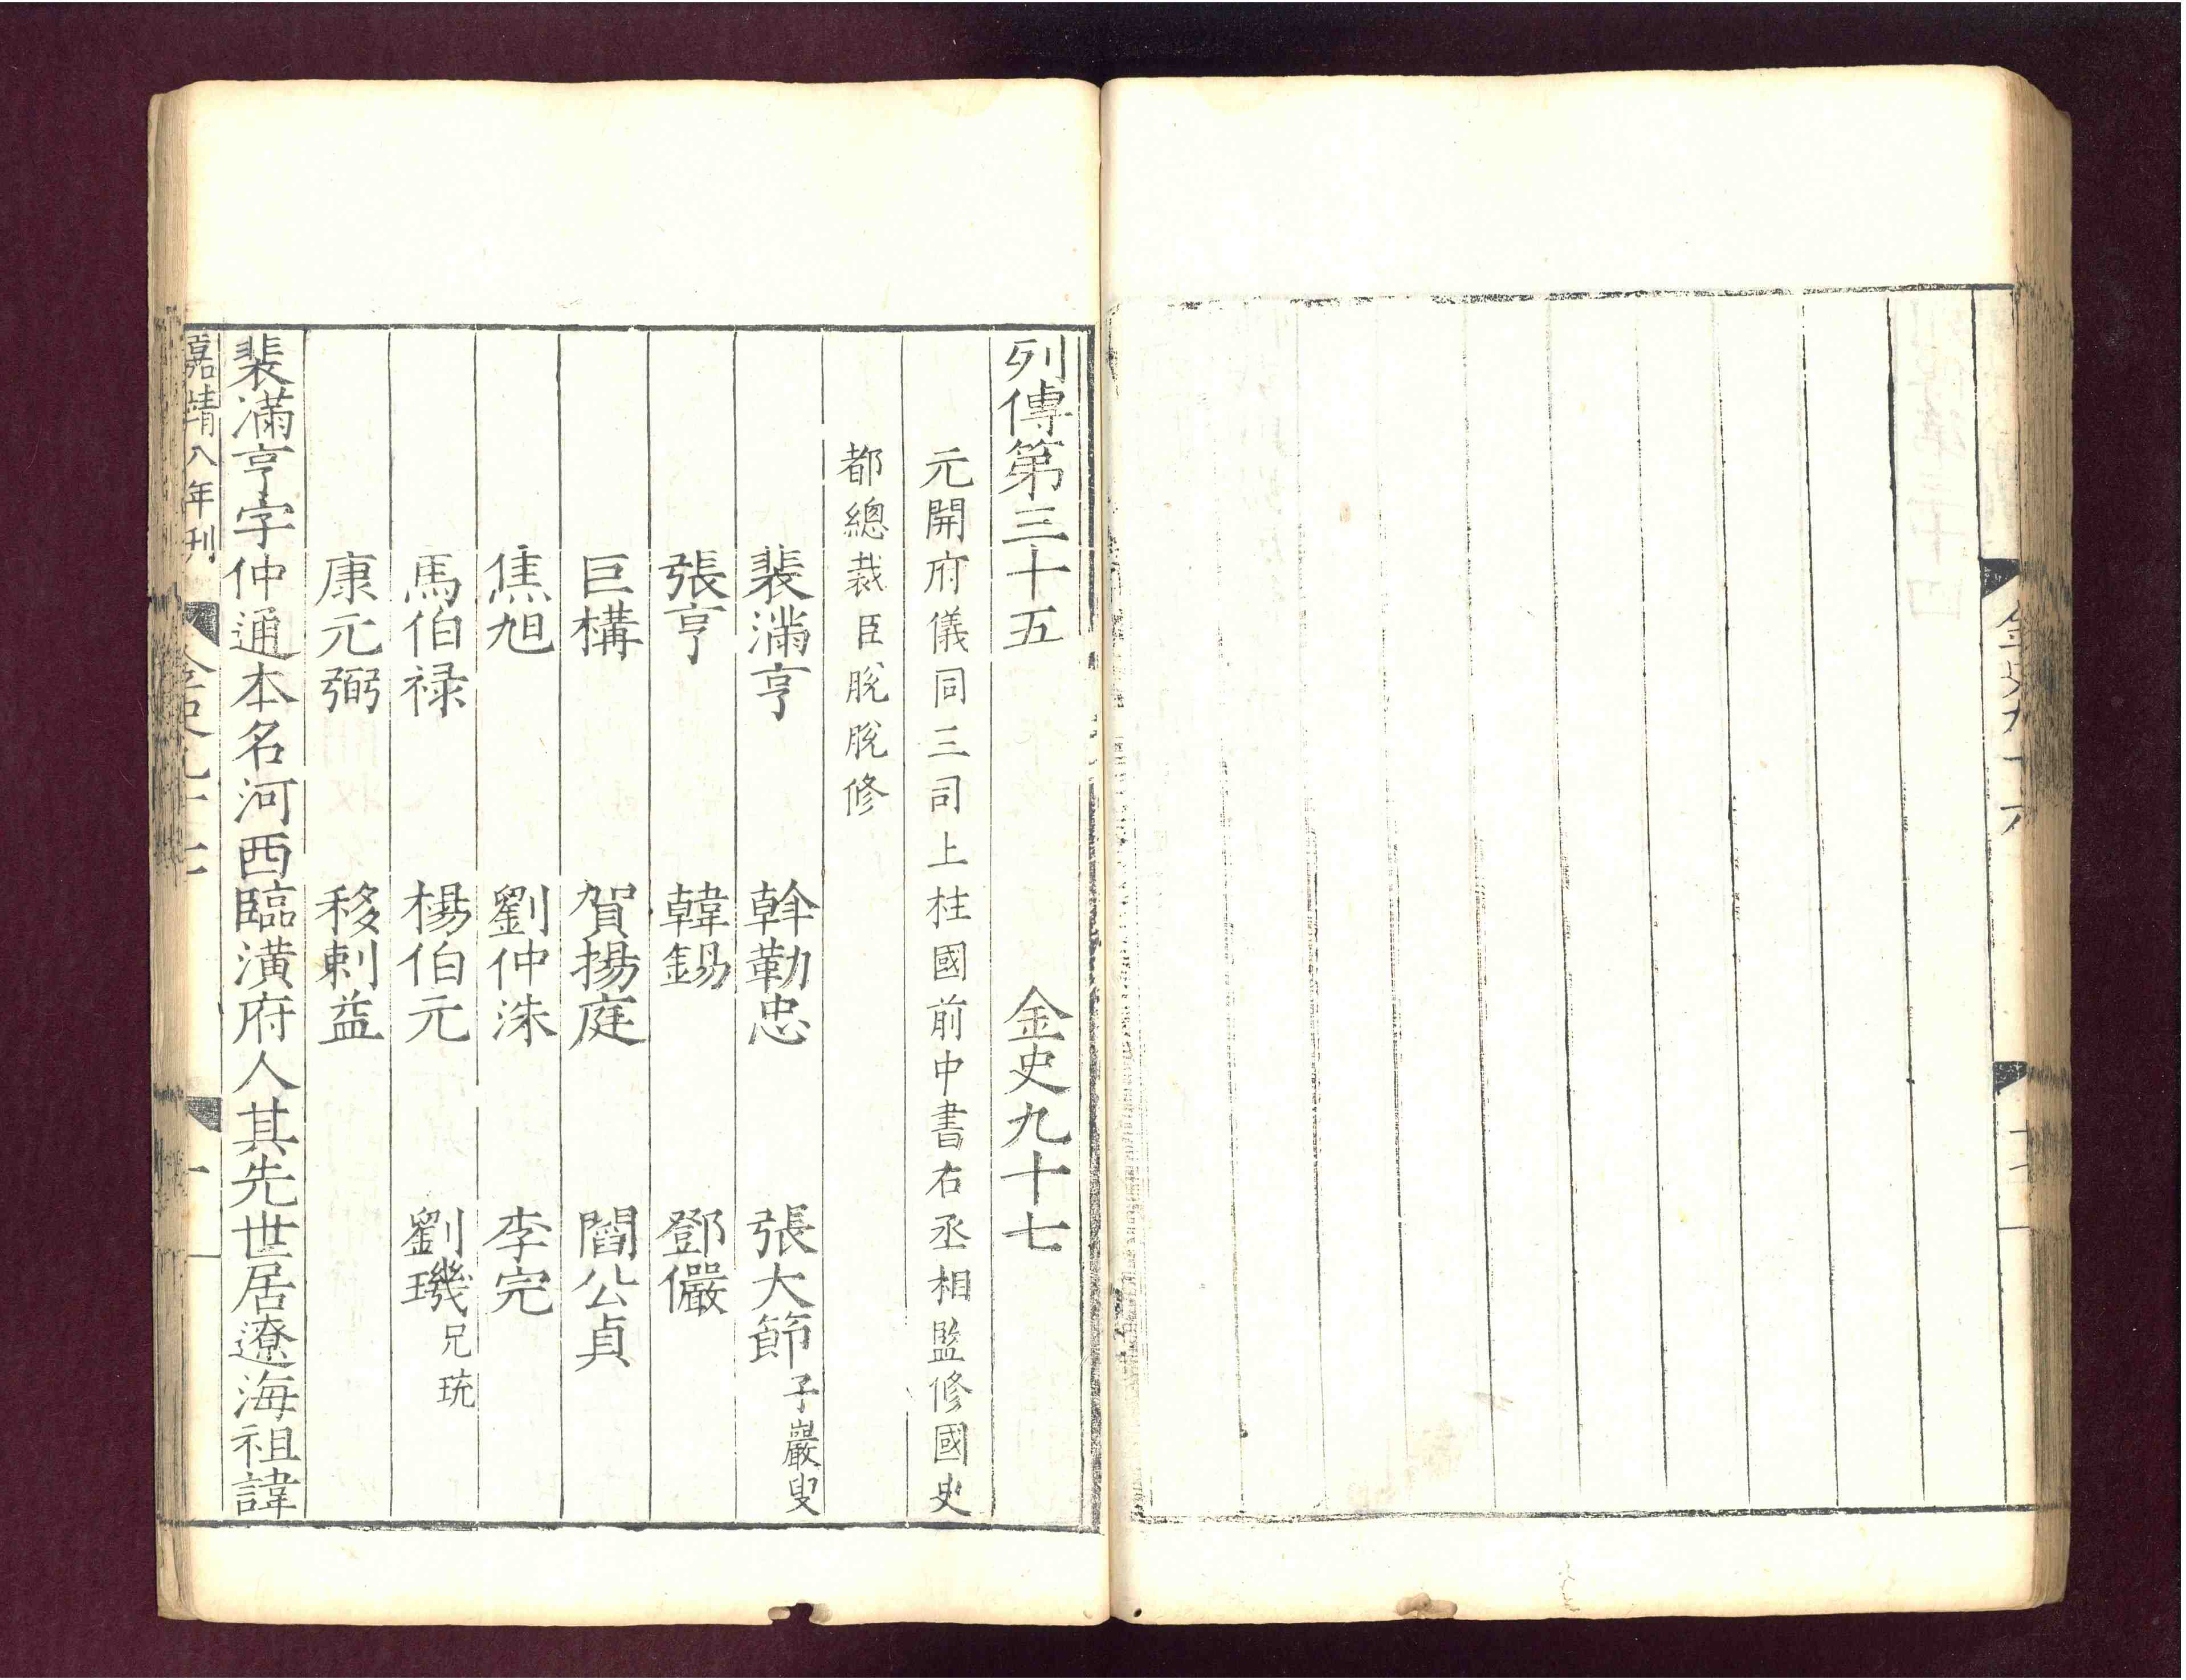 金史九十六
列傳第三十五 金史九十七
元開府儀同三司上柱國前中書右丞相監修國史
都總裁臣脫脫修
裴滿亨 斡勒忠 張大節子巖叟
張亨 韓錫 鄧儼
巨構 賀揚庭 閻公貞
焦旭 劉仲洙 李完
馬伯禄 楊伯元 劉璣兄珫
康元弼 移剌益
裴滿亨字仲通本名河西臨潢府人其先世居遼海祖諱
嘉靖八年刊 金史九十七 一